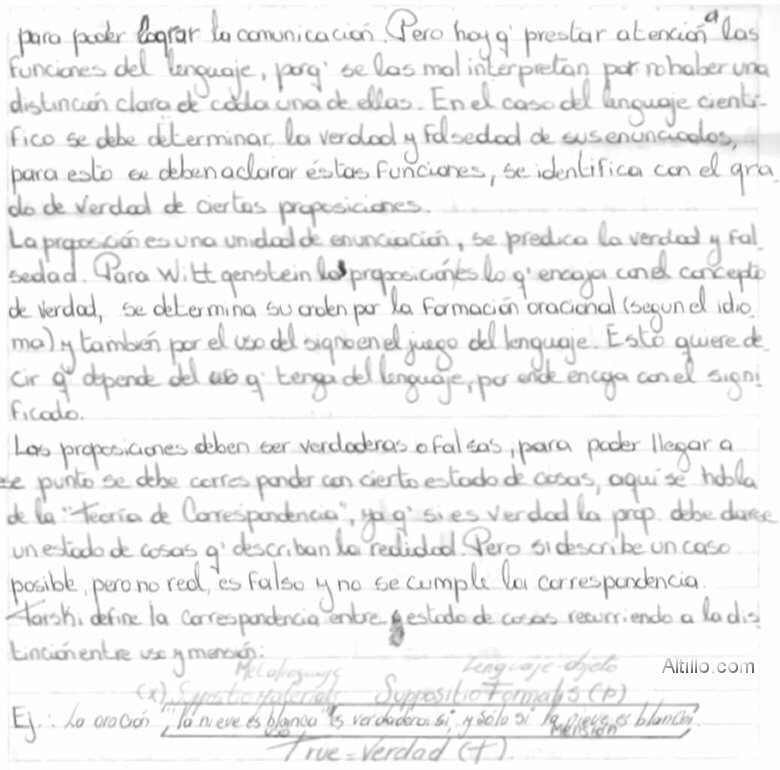 para poder lograr la comunicación. Pero hay q' prestar atención a las
funciones del lenguaje, porq' se las mal interpretan por no haber una
distinción clara de cada una de ellas. En el caso del lenguaje cientí-
fico se debe determinar la verdad y falsedad de sus enunciados,
para esto se deben aclarar éstas funciones, se identifica con el gra-
do de verdad de ciertas proposiciones.
La proposición es una unidad de enunciación, se predica la verdad y fal-
sedad. Para Wittgenstein las proposiciónes lo q' encaja con el concepto
de verdad, se determina su orden por la formación oracional (segun el idio-
ma) y también por el uso del signo en el juego del lenguaje. Esto quiere de-
cir q' depende del uso q' tenga del lenguaje, por ende encaja con el signi-
ficado.
Las proposiciones deben ser verdaderas o falsas, para poder llegar a
se punto se debe corresponder con cierto estado de cosas, aquí se habla
de la "Teoría de Correspondencia", ya q' si es verdad la prop. debe darse
un estado de cosas q' describan la realidad. Pero si describe un caso
posible, pero no real, es falso y no se cumple la correspondencia.
Tarski define la correspondencia entre estado de cosas recurriendo a la dis-
tinción entre uso y mensión:
Metalenguaje Lenguaje-objeto
Altillo.com
(x) Suppositio Materialis Suppositio Formalis (p)
Ej.: La oración "la nieve es blanca" es verdadera si, y sólo si la nieve es blanca.
Mensión
True = Verdad (T).